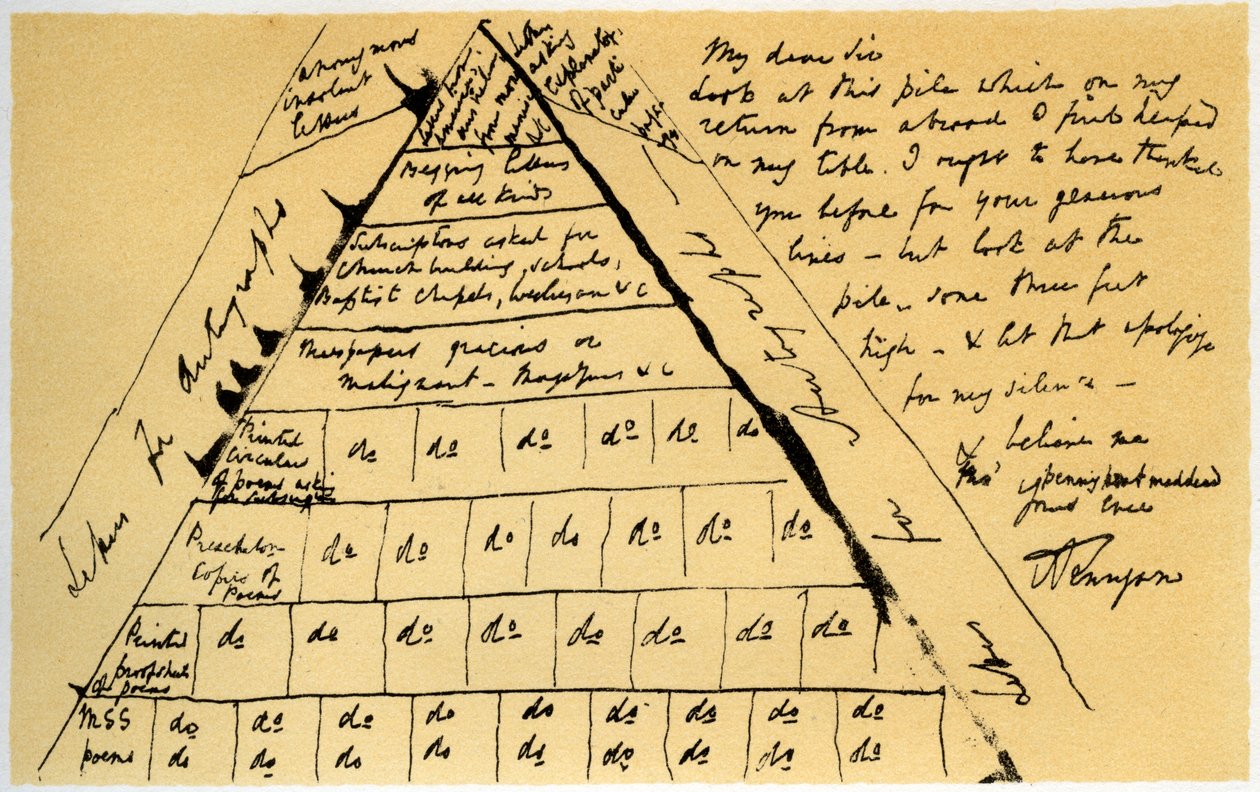 anonymous
insolent
letters
Letters for autographs
Letters from
for more
asking
explanator.
of parti
cular
&c
Begging letters
of all kinds
Subscriptions asked for
Church building, schools,
Baptist chapels, Wesleyan & C
Newspapers gracious or
malignant — Magazines & C
Printed
circulars
of poems asking
for subscription
do do do do do do
Presentation
Copies of
Poems
do do do do do do do
Printed
proofsheets
of poems
do do do do do do do do
MSS do do do do do do do do do
poems do do do do do do do do do
Letters for
My dear Sir
Look at this pile which on my
return from abroad I find heaped
on my table. I ought to have thanked
you before for your generous
lines — but look at the
pile, some three feet
high — & let that apologize
for my silence —
& believe me
tho' penny post maddened
yours ever
ATennyson